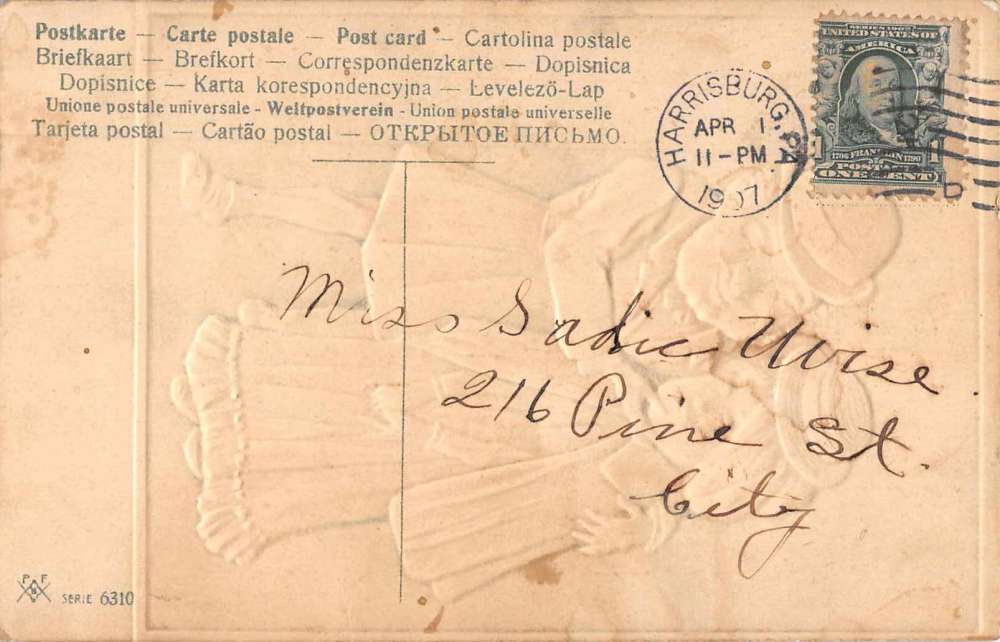 Postkarte — Carte postale — Post card — Cartolina postale
Briefkaart — Brefkort — Correspondenzkarte — Dopisnica
Dopisnice — Karta korespondencyjna — Levelező-Lap
Unione postale universale - Weltpostverein - Union postale universelle
Tarjeta postal — Cartão postal — ОТКРЫТОЕ ПИСЬМО.
SERIES 1902
UNITED STATES OF
AMERICA
1706 FRANKLIN 1790
POSTAGE
ONE CENT
HARRISBURG, PA
APR 1
11-PM
1907
Miss Sadie Wise
216 Pine St.
City
P F
SERIE 6310